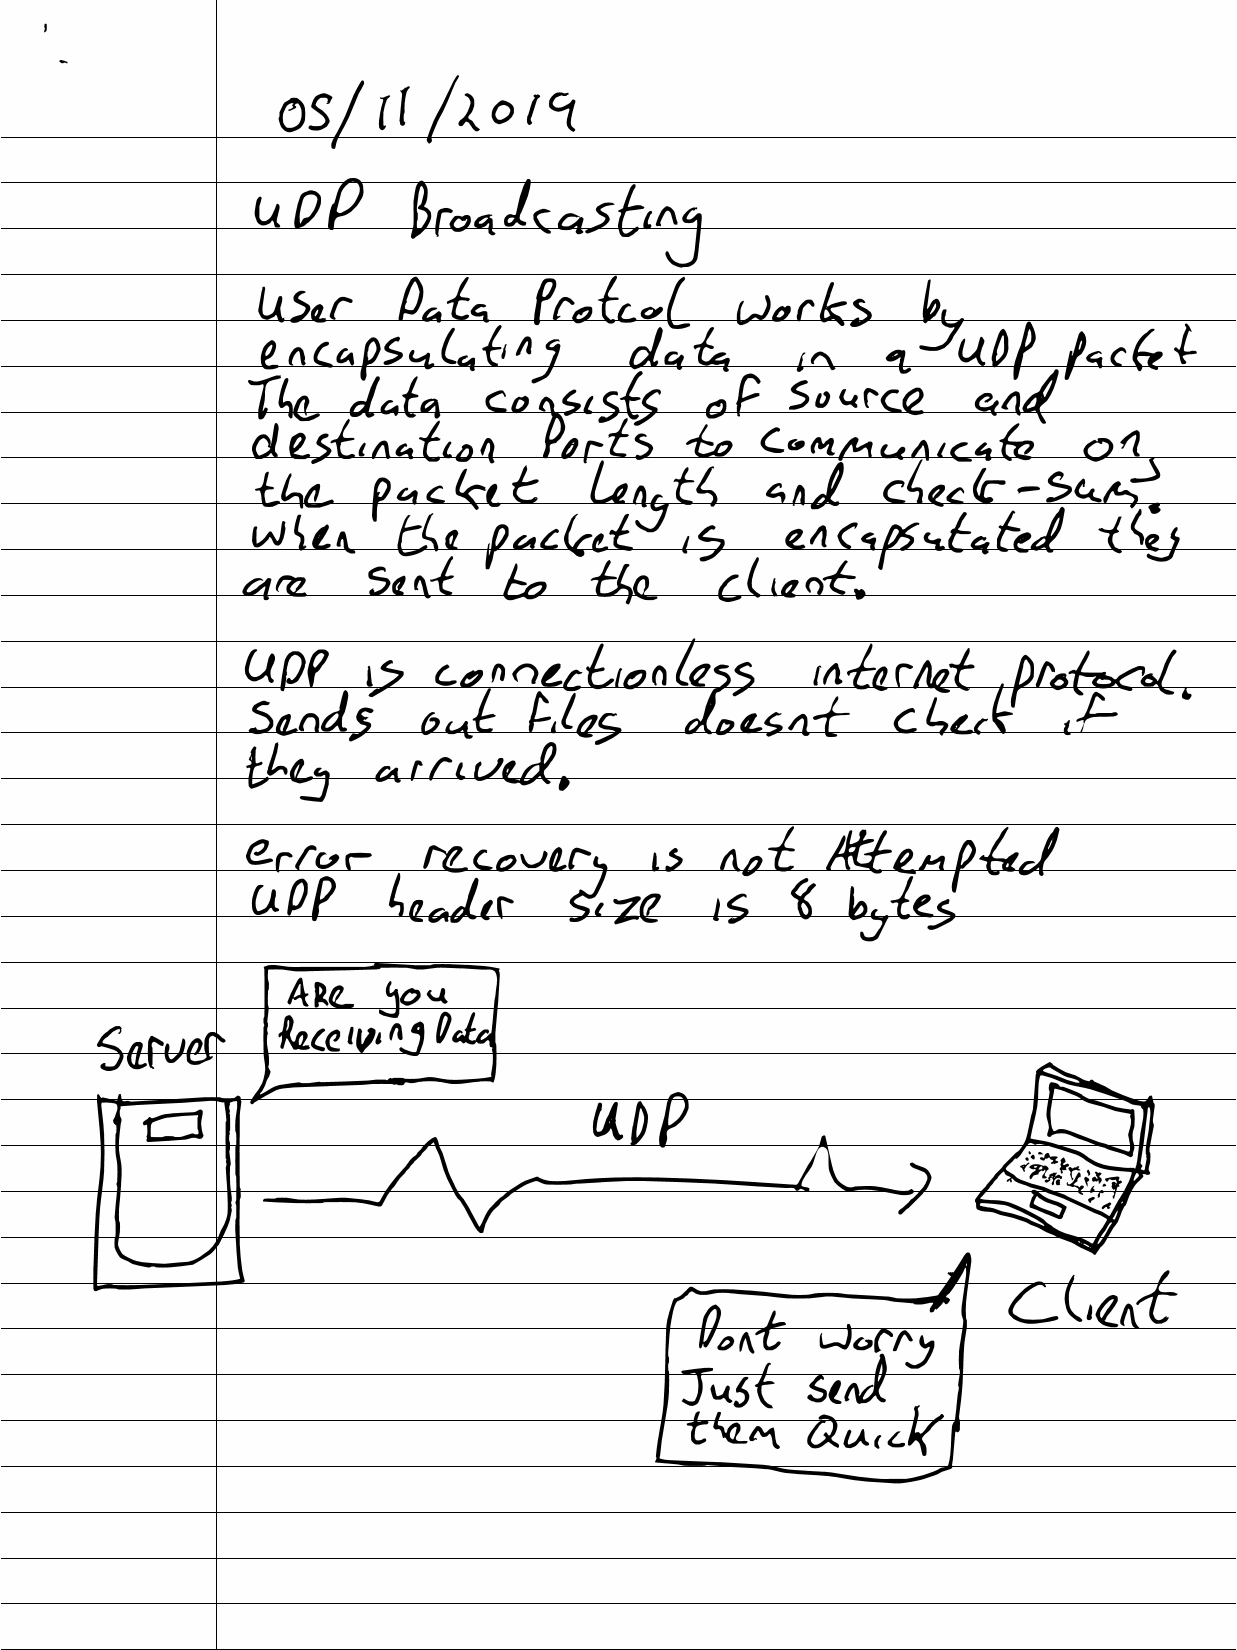 05/11/2019
UDP Broadcasting
User Data Protcol works by
encapsulating data in a UDP packet
The data consists of source and
destination Ports to communicate on,
the packet length and check-sum.
when the packet is encapsutated they
are sent to the client.
UDP is connectionless internet protocol.
Sends out files doesnt check if
they arrived.
error recovery is not Attempted
UDP header size is 8 bytes
ARe you
Receiving Data
Server
UDP
Client
Dont worry
Just send
them Quick